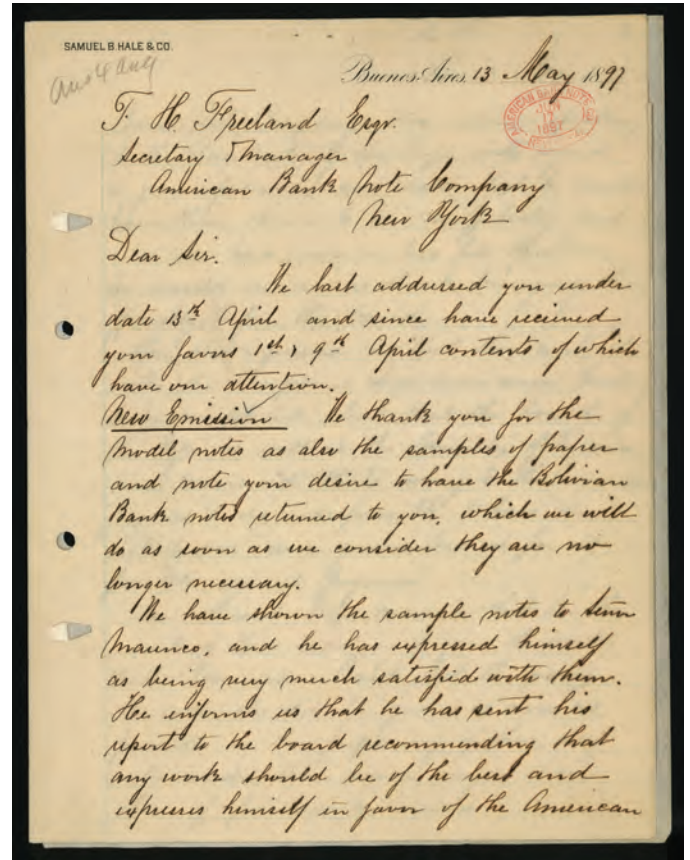 SAMUEL B. HALE & CO.
ans 4 Aug
Buenos Aires, 13 May 1897
AMERICAN BANK NOTE CO
JUN
17
1897
T. H. Freeland Esqr.
Secretary & Manager
American Bank Note Company
New York
Dear Sir.
We last addressed you under
date 13th April and since have received
your favors 1st & 9th April contents of which
have our attention.
New Emission We thank you for the
model notes as also the samples of paper
and note your desire to have the Bolivian
Bank notes returned to you, which we will
do as soon as we consider they are no
longer necessary.
We have shown the sample notes to Señor
, and he has expressed himself
as being very much satisfied with them.
He informs us that he has sent his
report to the board recommending that
any work should be of the best and
expresses himself in favor of the American